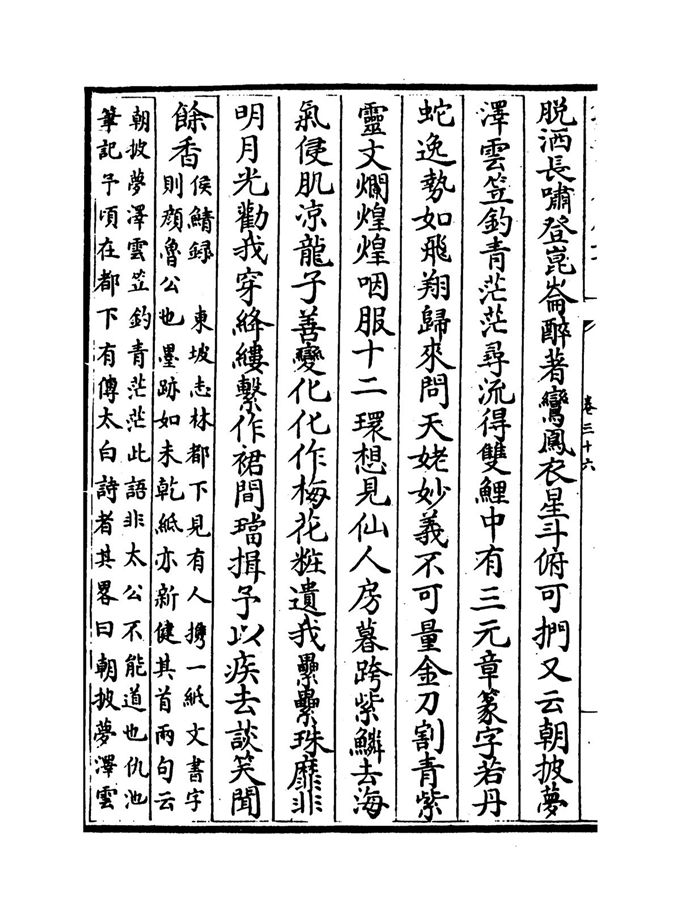 卷三十六
脱洒長嘯登崑崙醉著鸞鳳衣星斗俯可捫又云朝披夢
澤雲笠釣青茫茫尋流得雙鯉中有三元章篆字若丹
蛇逸勢如飛翔歸來問天姥妙義不可量金刀割青紫
靈文爛煌煌咽服十二環想見仙人房暮跨紫鱗去海
氣侵肌凉龍子善變化化作梅花粧遺我纍纍珠靡靡
明月光勸我穿絳縷繫作裙間璫揖予以疾去談笑聞
餘香
侯鯖録　東坡志林都下見有人攜一紙文書字
則顔魯公也墨跡如未乾紙亦新健其首兩句云
朝披夢澤雲笠釣青茫茫此語非太公不能道也仇池
筆記予頃在都下有傳太白詩者其畧曰朝披夢澤雲